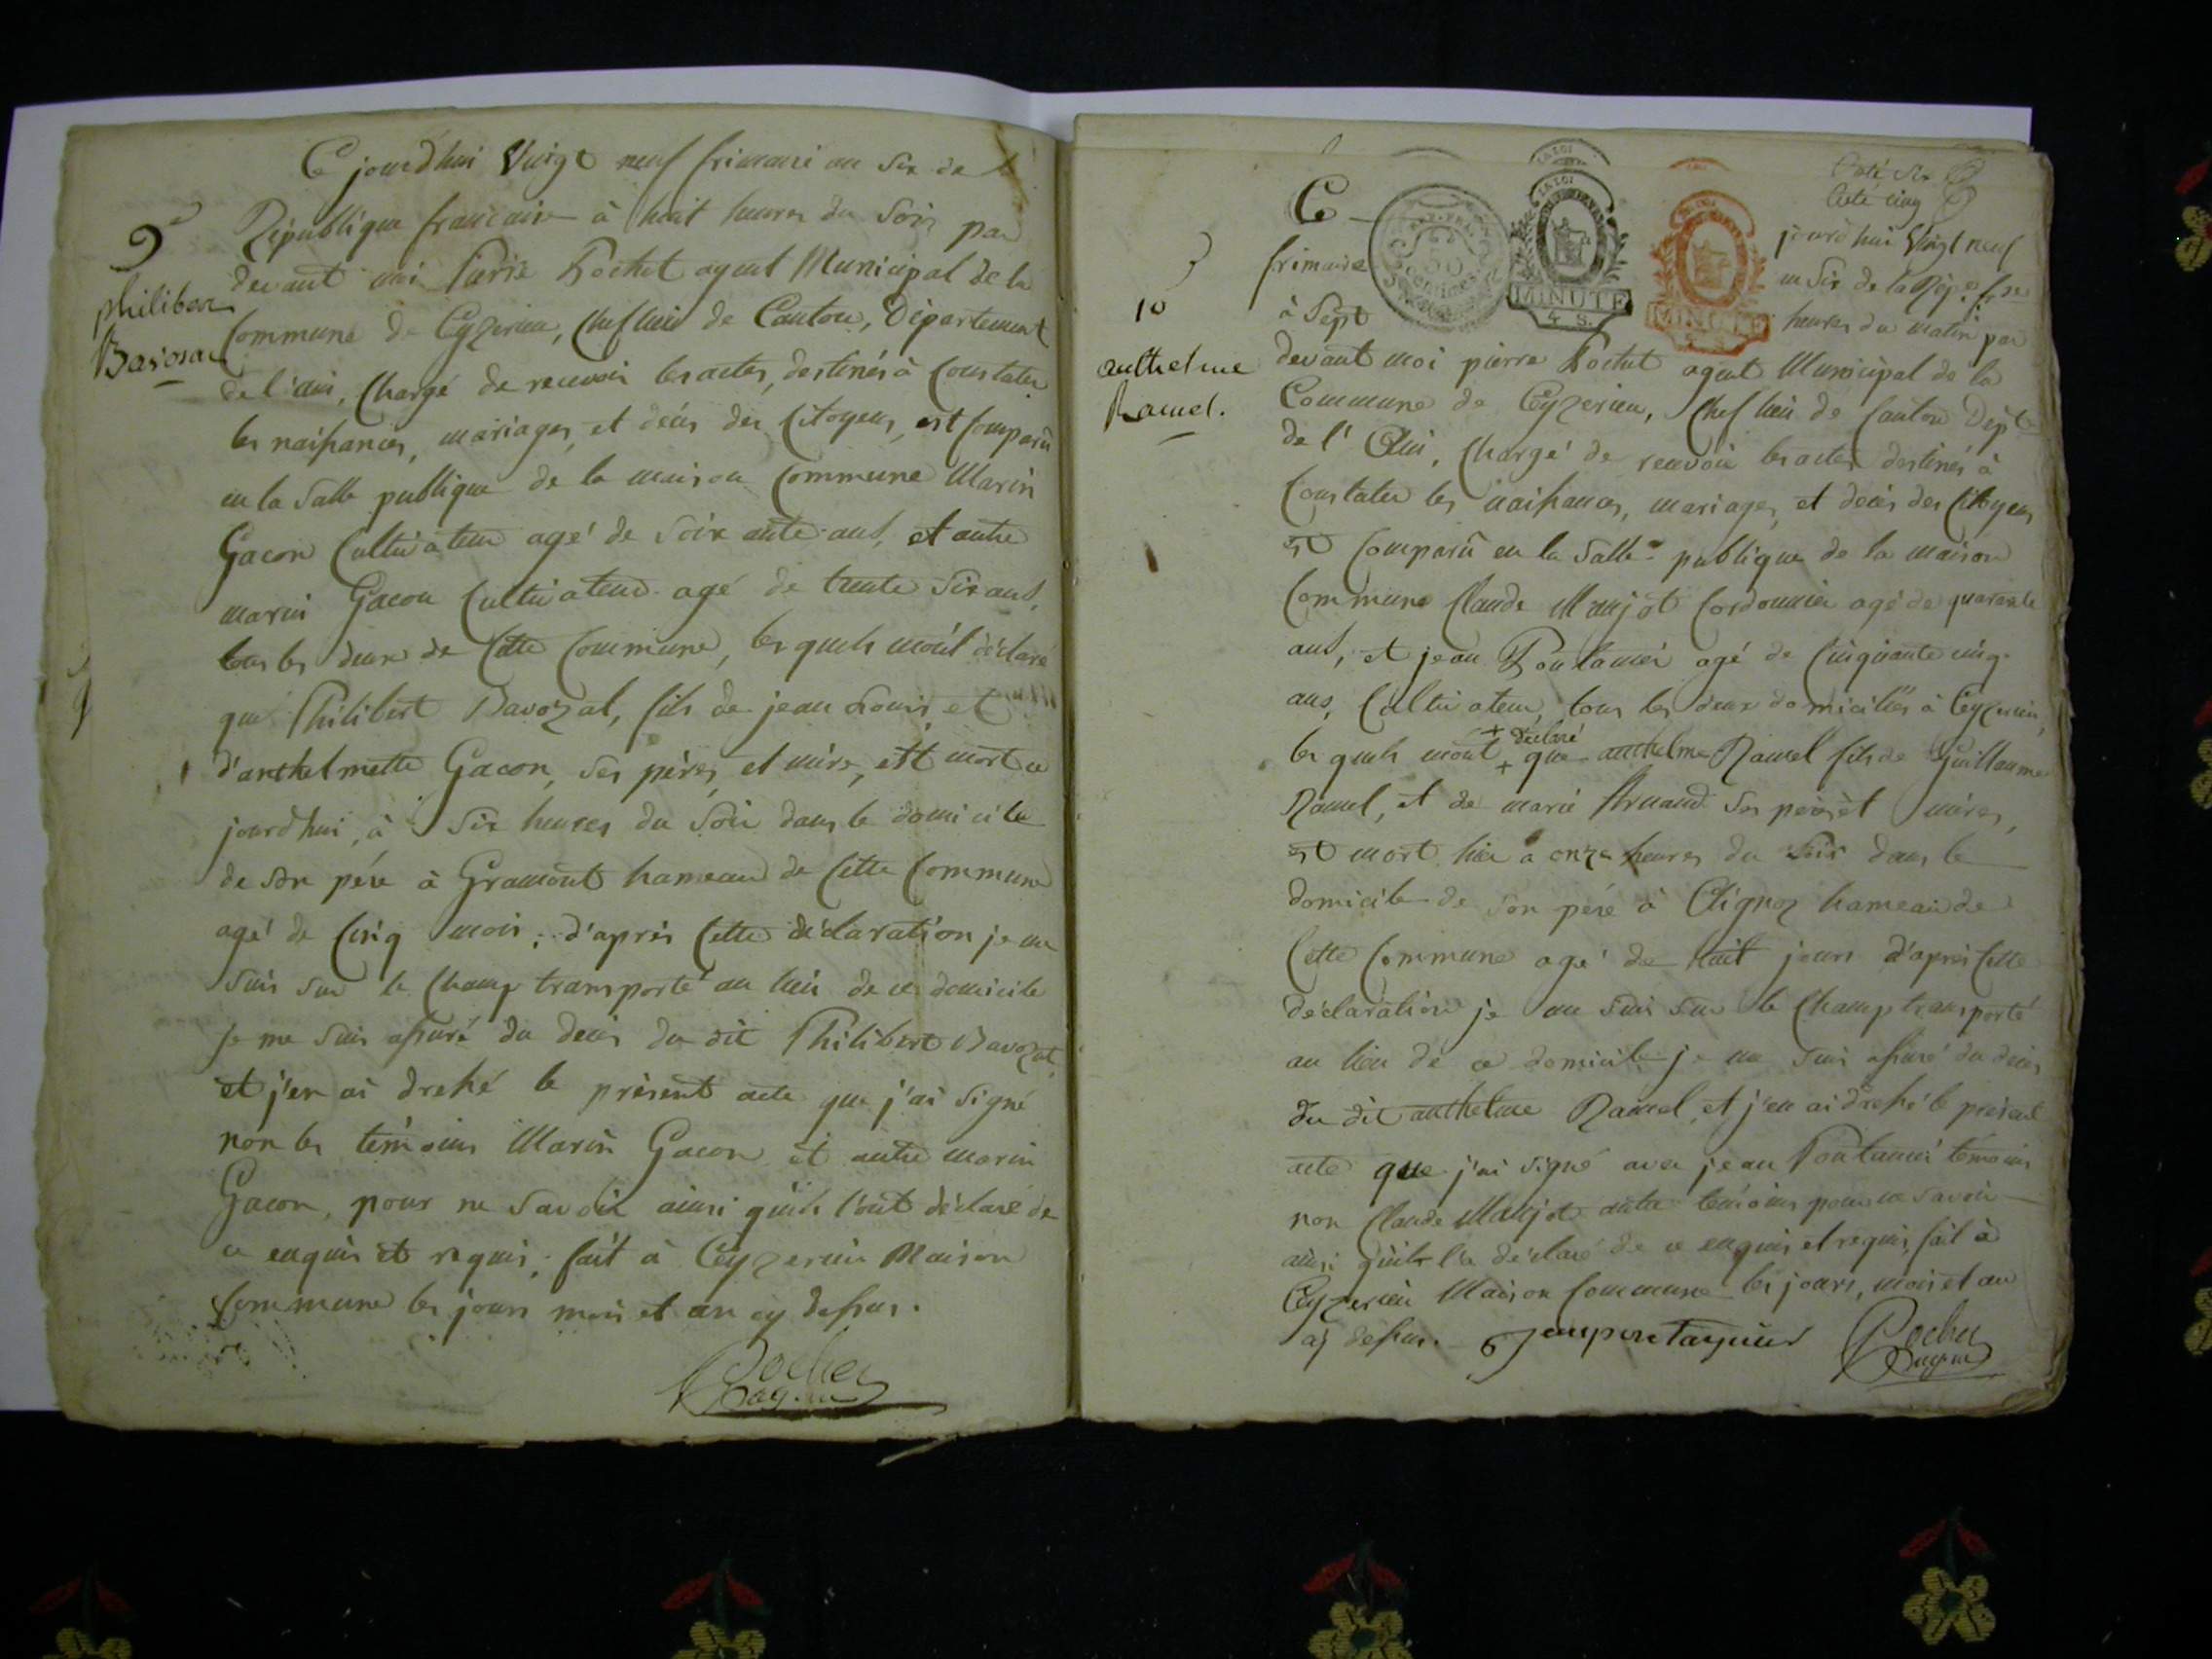 Ce jourd'hui Vingt neuf frimaire an Six de la
République francaise à huit heures du Soir par
devant moi Pierre Pochet agent Municipal de la
Commune de Ceyzerieu, Cheflieu de Canton, Département
de l'ain, Chargé de recevoir les actes, destinés à Constater
les naissances, mariages, et décès des Citoyens, est Comparu
en la Salle publique de la maison Commune Marin
Gacon Cultivateur agé de Soixante ans, et autre
marin Gacon Cultivateur agé de trente Six ans,
tous les deux de Cette Commune, les quels m'ont déclaré
que Philibert Bavozat, fils de jean Louis, et
d'anthelmette Gacon, Ses pères, et mère, est mort ce
jourd'hui, à Six heures du Soir dans le domicile
de Son père à Gramont hameau de Cette Commune
agé de Cinq mois; d'après Cette déclaration je me
Suis Sur le Champ transporté au lieu de ce domicile
je me Suis assuré du décès du dit Philibert Bavozat,
et j'en ai dressé le présent acte que j'ai Signé
non les témoins Marin Gacon et autre marin
Gacon, pour ne Savoir ainsi qu'ils l'ont déclaré de
ce enquis et requis; fait à Ceyzerieu Maison
Commune les jours mois et an cy dessus.
Pochet
agent
9
philibert
Bavozat
Coté Six
Coté cinq
Ce jourd'hui Vingt neuf
frimaire an Six de la Rép. fse
à Sept heures du matin par
50
MINUTE
4 S.
MINUTE
devant moi pierre Pochet agent Municipal de la
Commune de Ceyzerieu, Chef lieu de Canton Dépt
de l'Ain, Chargé de recevoir les actes destinés à
Constater les naissances, mariages, et décès des Citoyens
est Comparû en la Salle publique de la maison
Commune Claude Manjot Cordonnier agé de quarante
ans, et jean Pontanier agé de Cinquante cinq
ans, Cultivateur, tous les deux domiciliés à Ceyzerieu,
les quels m'ont + que anthelme Ramel fils de Guillaume
+ déclaré
Ramel, et de marie Ses pères et mères,
est mort hier à onze heures du Soir dans le
domicile de Son père à Aignoz hameau de
Cette Commune agé de huit jours d'après Cette
déclaration je me Suis Sur le Champ transporté
au lieu de ce domicile je me Suis assuré du décès
du dit anthelme Ramel, et j'en ai dressé le présent
acte que j'ai Signé avec jean Pontanier témoins
non Claude Manjot autre témoins pour ne Savoir
ainsi qu'il l'a déclaré de ce enquis et requis, fait à
Ceyzerieu Maison Commune les jours, mois et an
cy dessus.
Pochet
agent
10
anthelme
Ramel.